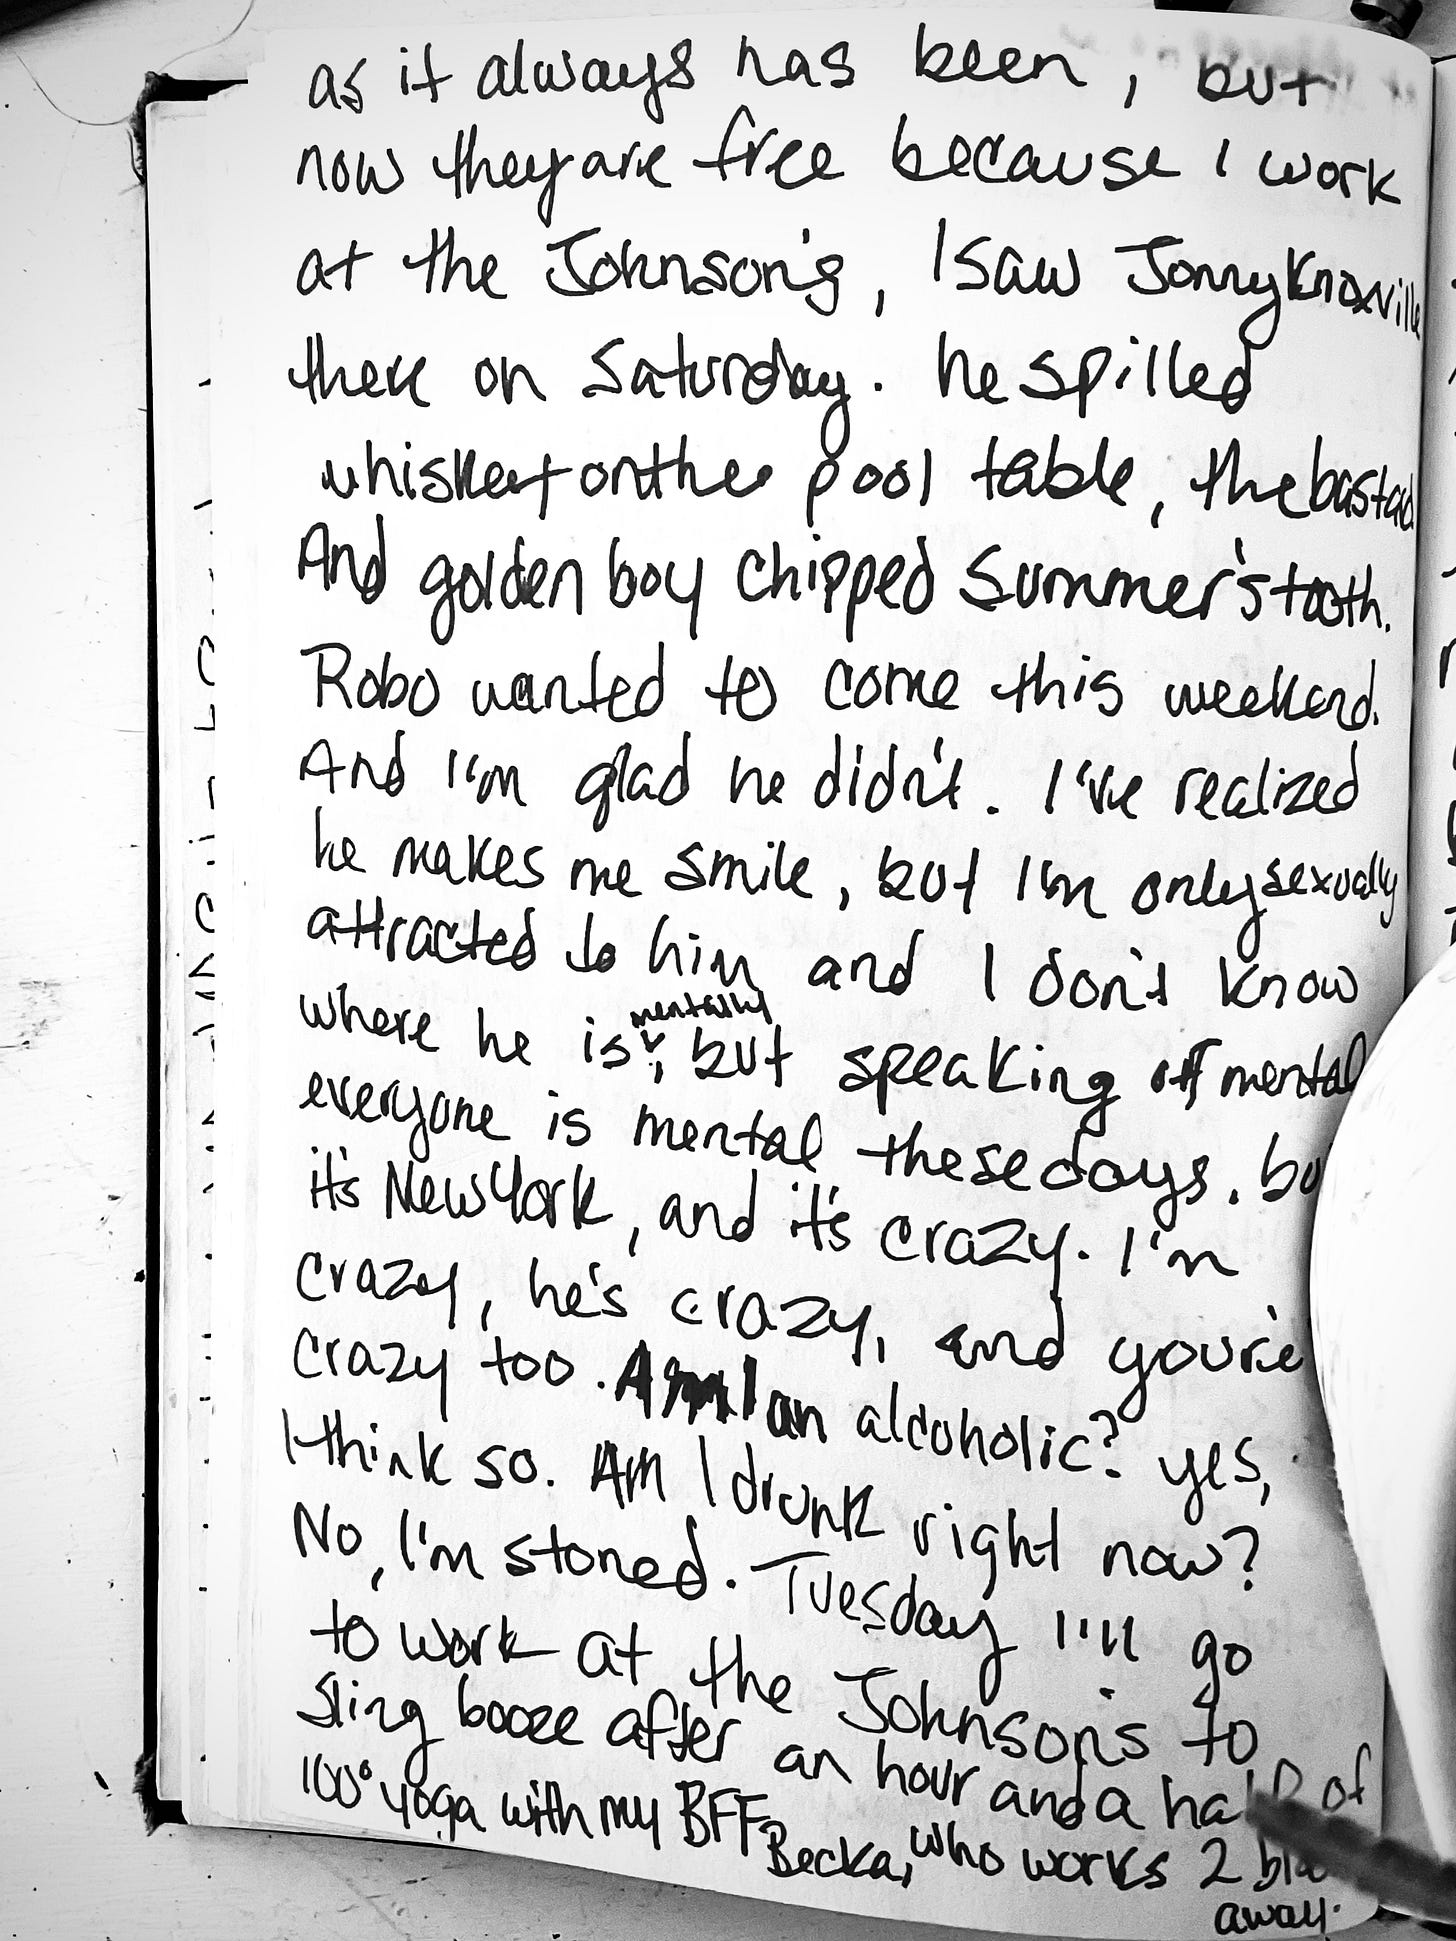 as it always has been, but
now they are free because I work
at the Johnson's, I saw Jonny Knoxville
there on Saturday. he spilled
on the pool table, the bastad
And golden boy chipped Summer's tooth.
Robo wanted to come this weekend.
And I'm glad he didn't. I've realized
he makes me smile, but I'm only sexually
attracted to him and I don't know
mentally
where he is, but speaking off mental
everyone is mental these days. bu
it's New York, and it's crazy. I'm
crazy, he's crazy, and you're
crazy too. Am I an alcoholic? yes,
I think so. Am I drunk right now?
No, I'm stoned. Tuesday I'll go
to work at the Johnson's to
sling booze after an hour and a half of
100° yoga with my BFF
Becka, who works 2
away.